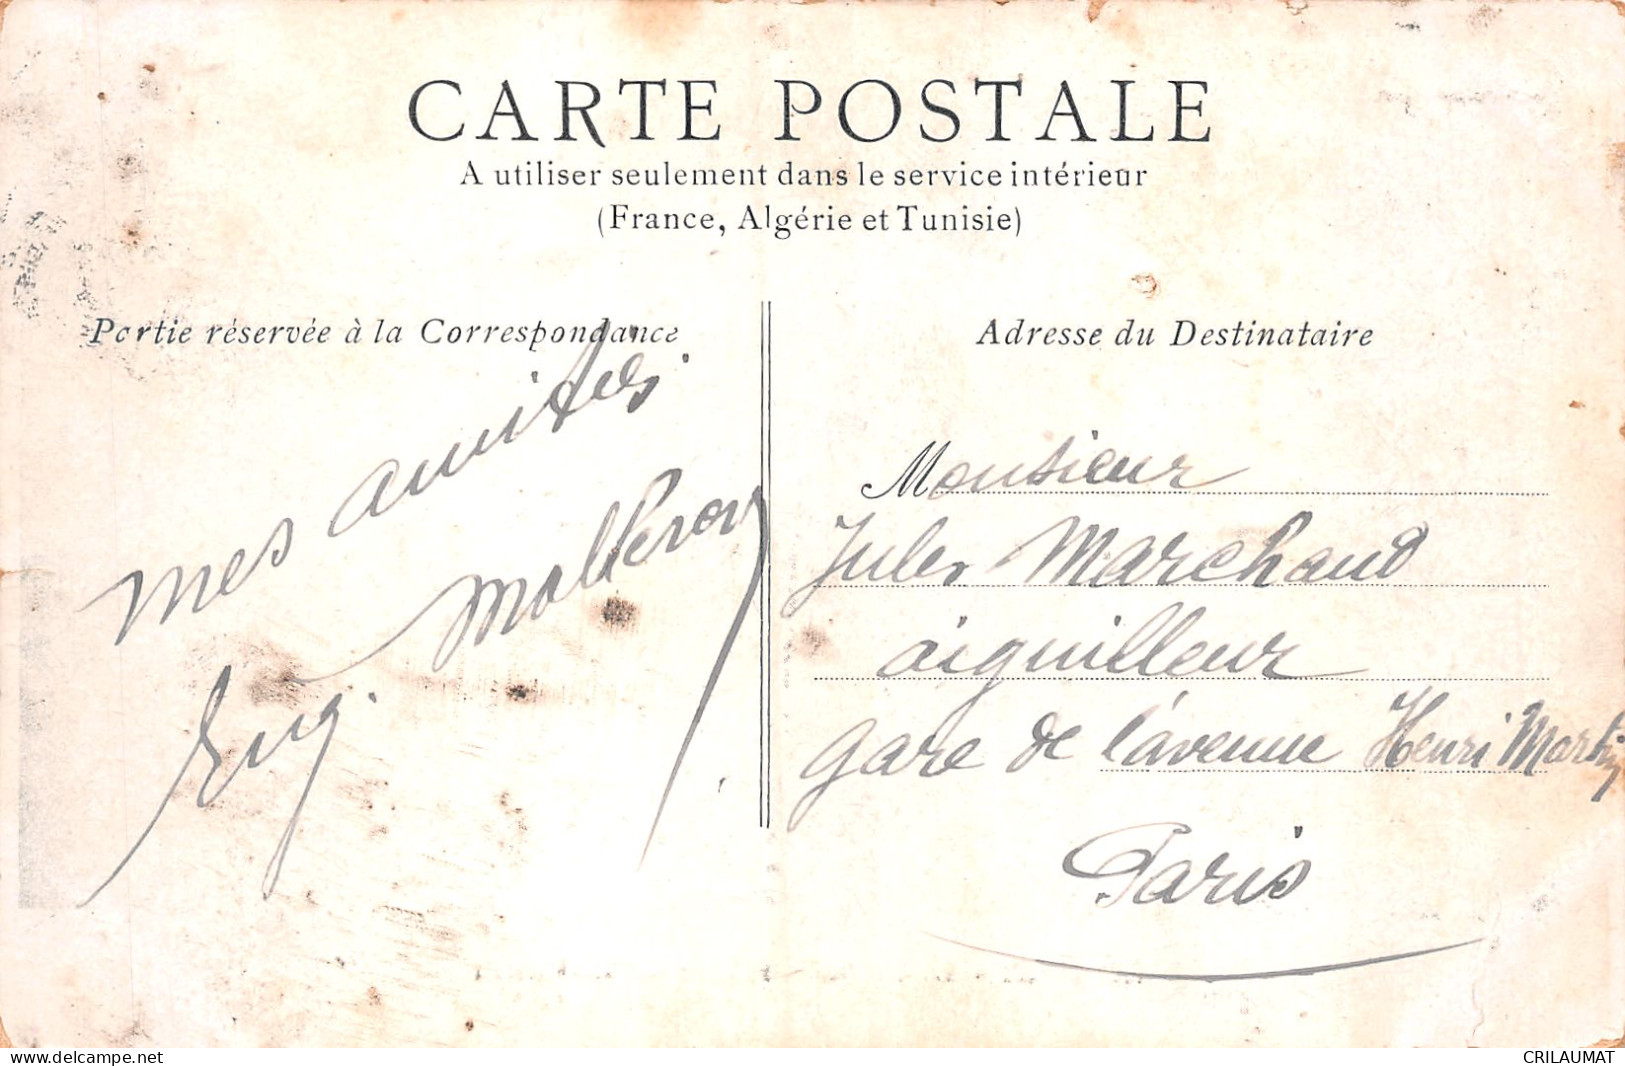 CARTE POSTALE
A utiliser seulement dans le service intérieur
(France, Algérie et Tunisie)
Partie réservée à la Correspondance
mes amitiés
Eug.
Adresse du Destinataire
Monsieur
Jules Marchand
aiguilleur
gare de l'avenue Henri Martin
Paris
delcampe.net
CRILAUMAT